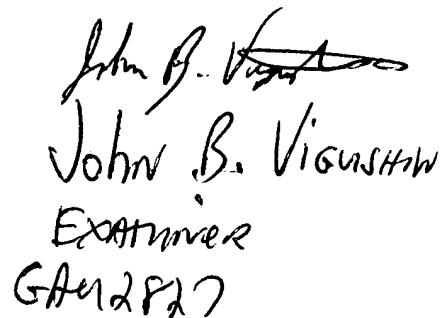 John B. Vigushin
John B. Vigushin
Examiner
GAU 2827